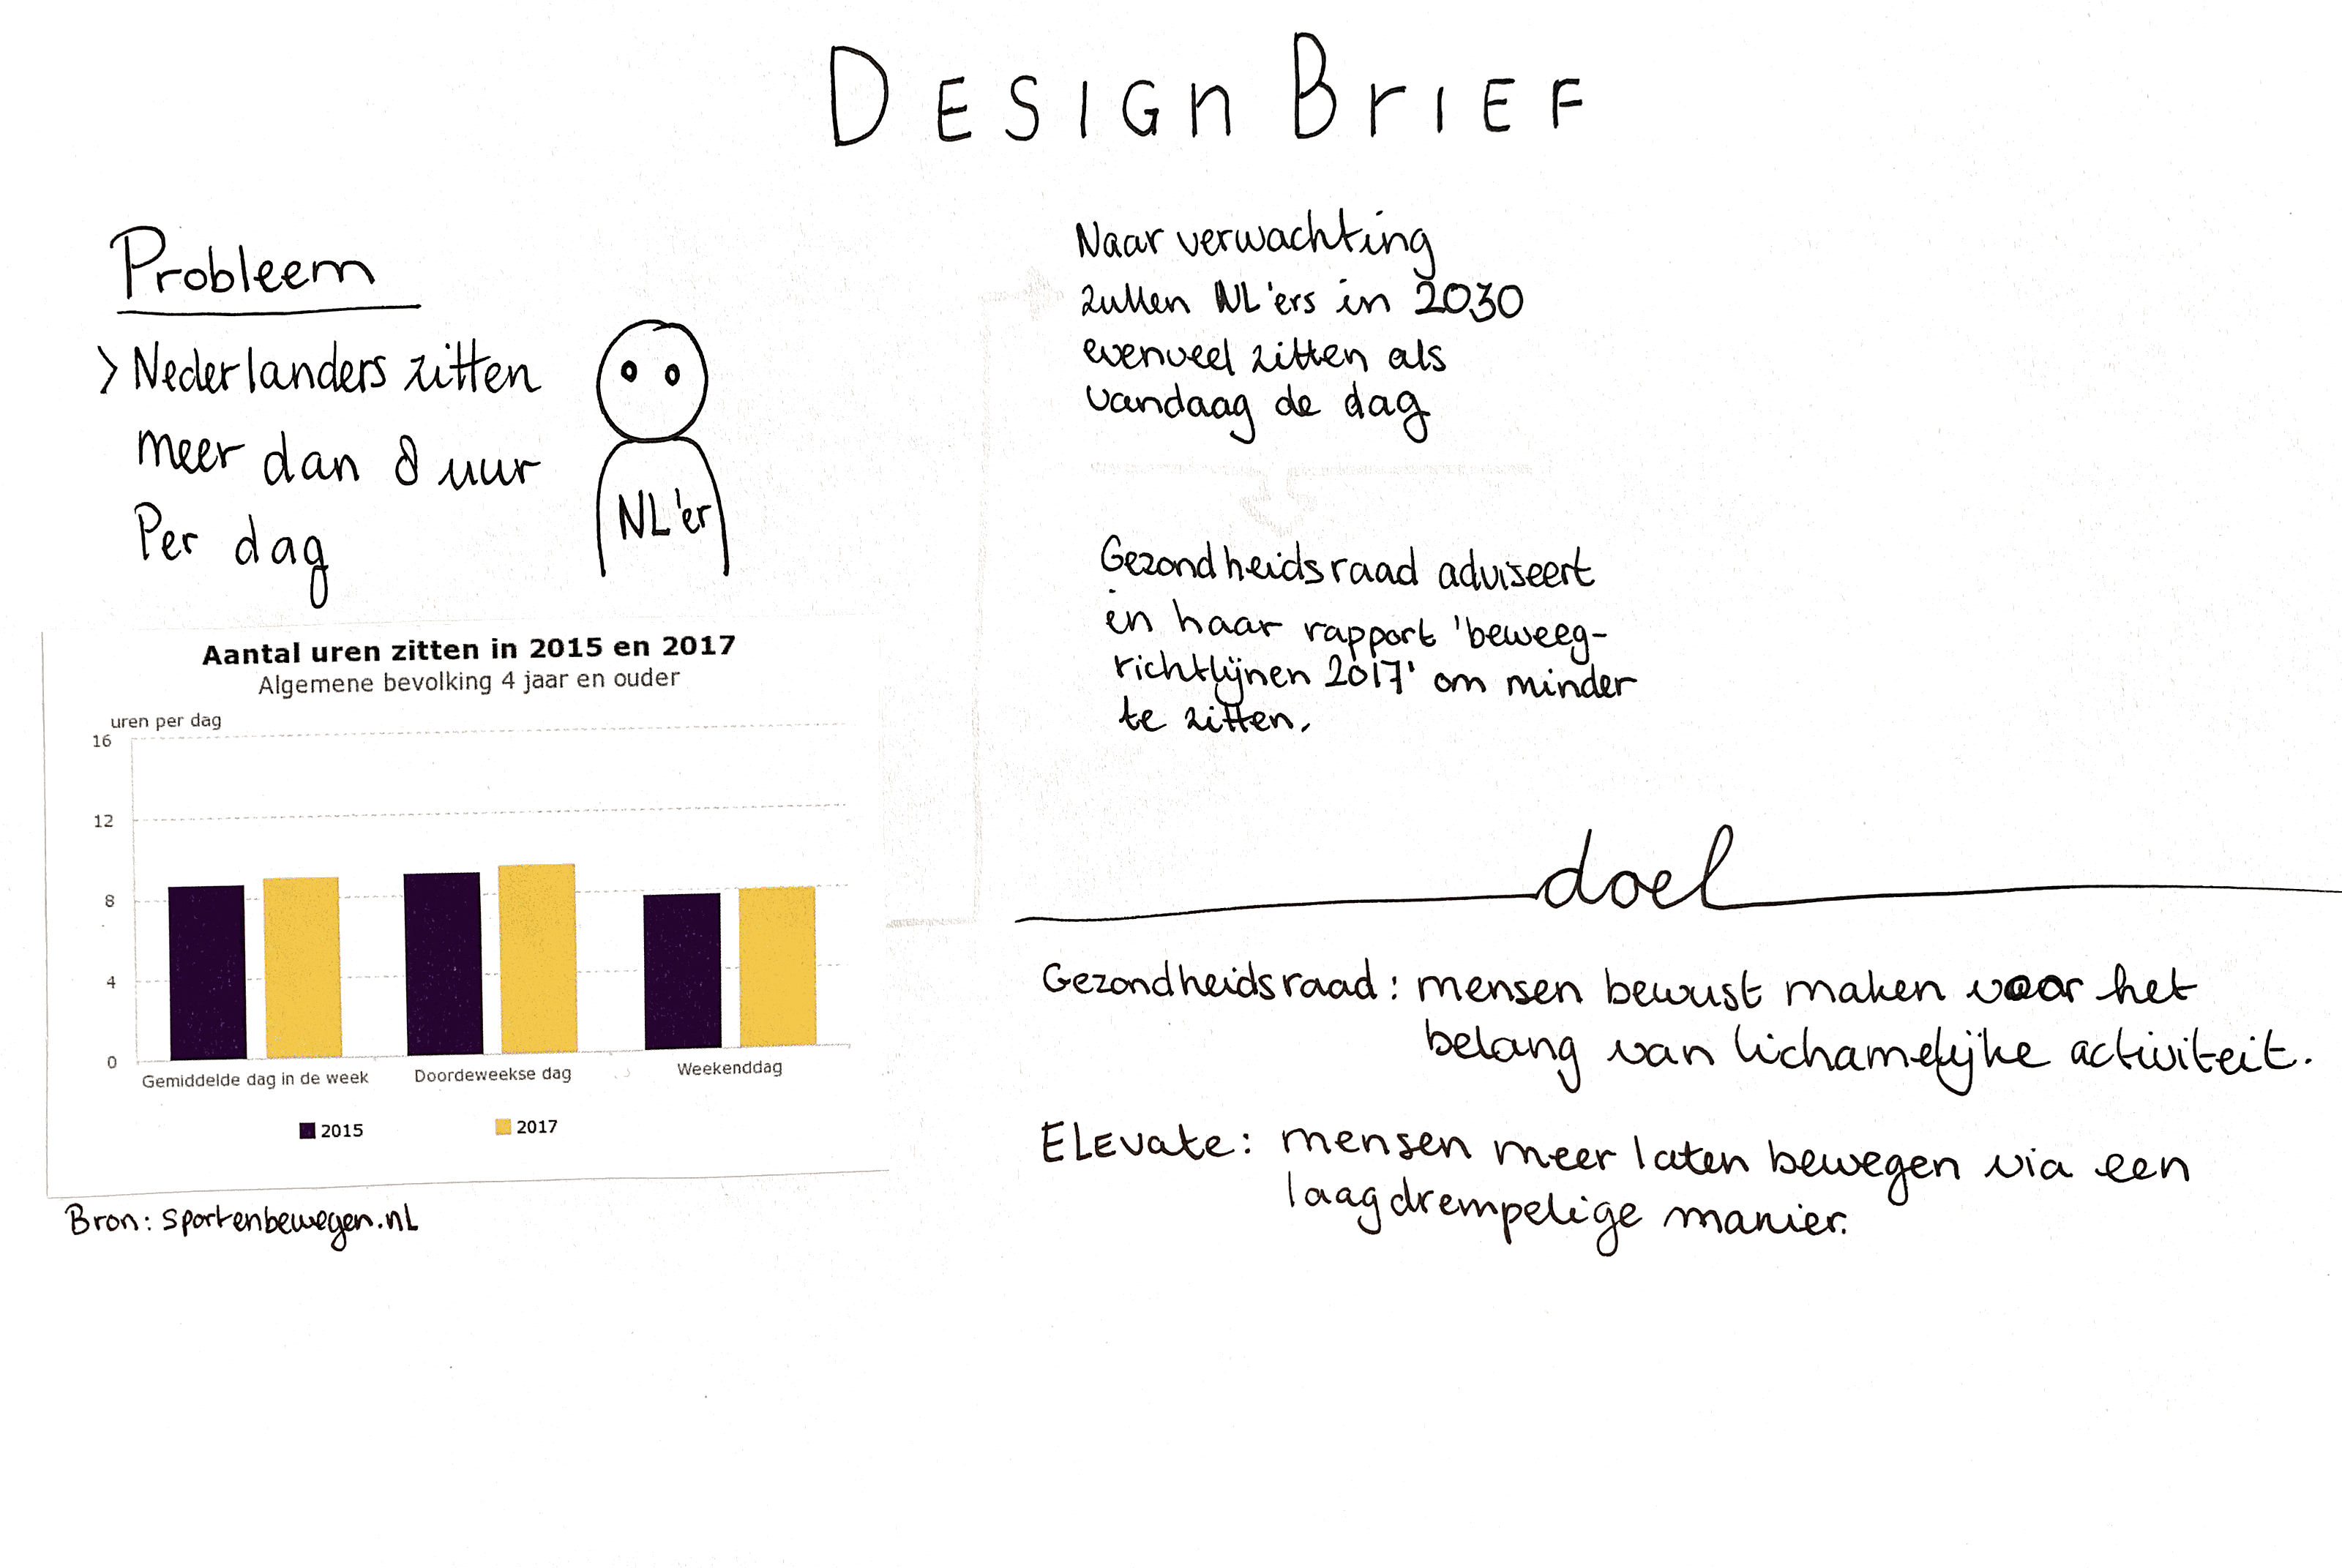 DESIGn BrIEF
Probleem
> Nederlanders zitten
meer dan 8 uur
Per dag
NL'er
Aantal uren zitten in 2015 en 2017
Algemene bevolking 4 jaar en ouder
uren per dag
16
12
8
4
0
Gemiddelde dag in de week Doordeweekse dag Weekenddag
2015 2017
Bron: sportenbewegen.nl
Naar verwachting
zullen NL'ers in 2030
evenveel zitten als
vandaag de dag
Gezondheidsraad adviseert
in haar rapport 'beweeg-
richtlijnen 2017' om minder
te zitten.
doel
Gezondheidsraad: mensen bewust maken voor het
belang van lichamelijke activiteit.
ELEvate: mensen meer laten bewegen via een
laagdrempelige manier.